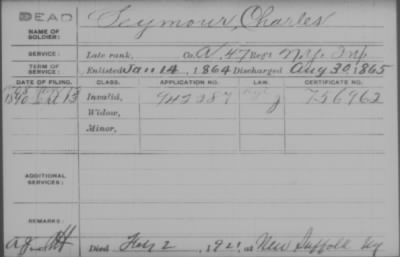 DEAD
NAME OF SOLDIER: Seymour, Charles
SERVICE: Late rank, Co. A, 47 Reg't N.Y. Inf
TERM OF SERVICE: Enlisted Jan 14, 1864 Discharged Aug 30, 1865
DATE OF FILING. CLASS. APPLICATION NO. LAW. CERTIFICATE NO.
1890 Invalid, 756962
Widow,
Minor,
ADDITIONAL SERVICES:
REMARKS:
Died 2, 192 at New Suffolk NY